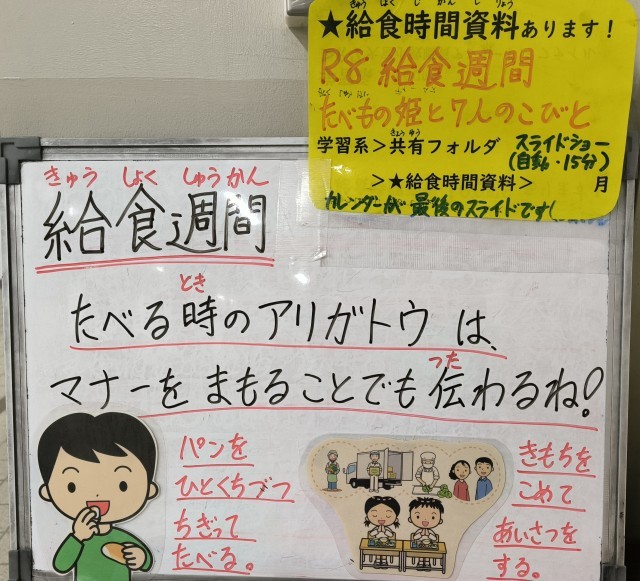 きゅう しょく じ かん し りょう
★給食時間資料あります！
R8 給食週間
たべもの姫と7人のこびと
きょう ゆう
学習系＞共有フォルダ スライドショー
(自動・15分)
＞★給食時間資料＞ 月
カレンダーが最後のスライドです
きゅう しょく しゅうかん
給食週間
とき
たべる時のアリガトウは、
つた
マナーをまもることでも伝わるね！
パンを
ひとくちづつ
ちぎって
たべる。
きもちを
こめて
あいさつを
する。